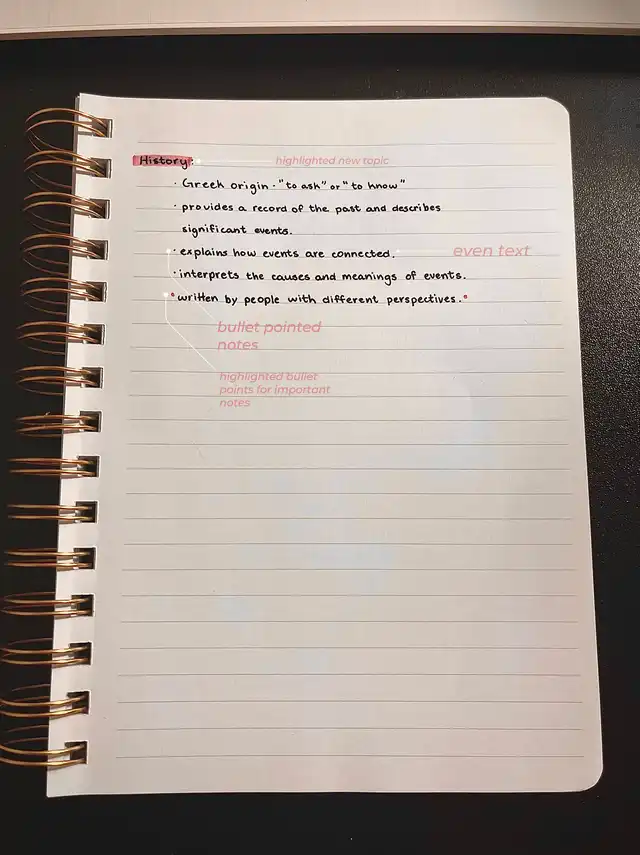 History:
highlighted new topic
· Greek origin · "to ask" or "to know"
· provides a record of the past and describes
significant events.
· explains how events are connected.
even text
· interprets the causes and meanings of events.
• written by people with different perspectives.•
bullet pointed
notes
highlighted bullet
points for important
notes